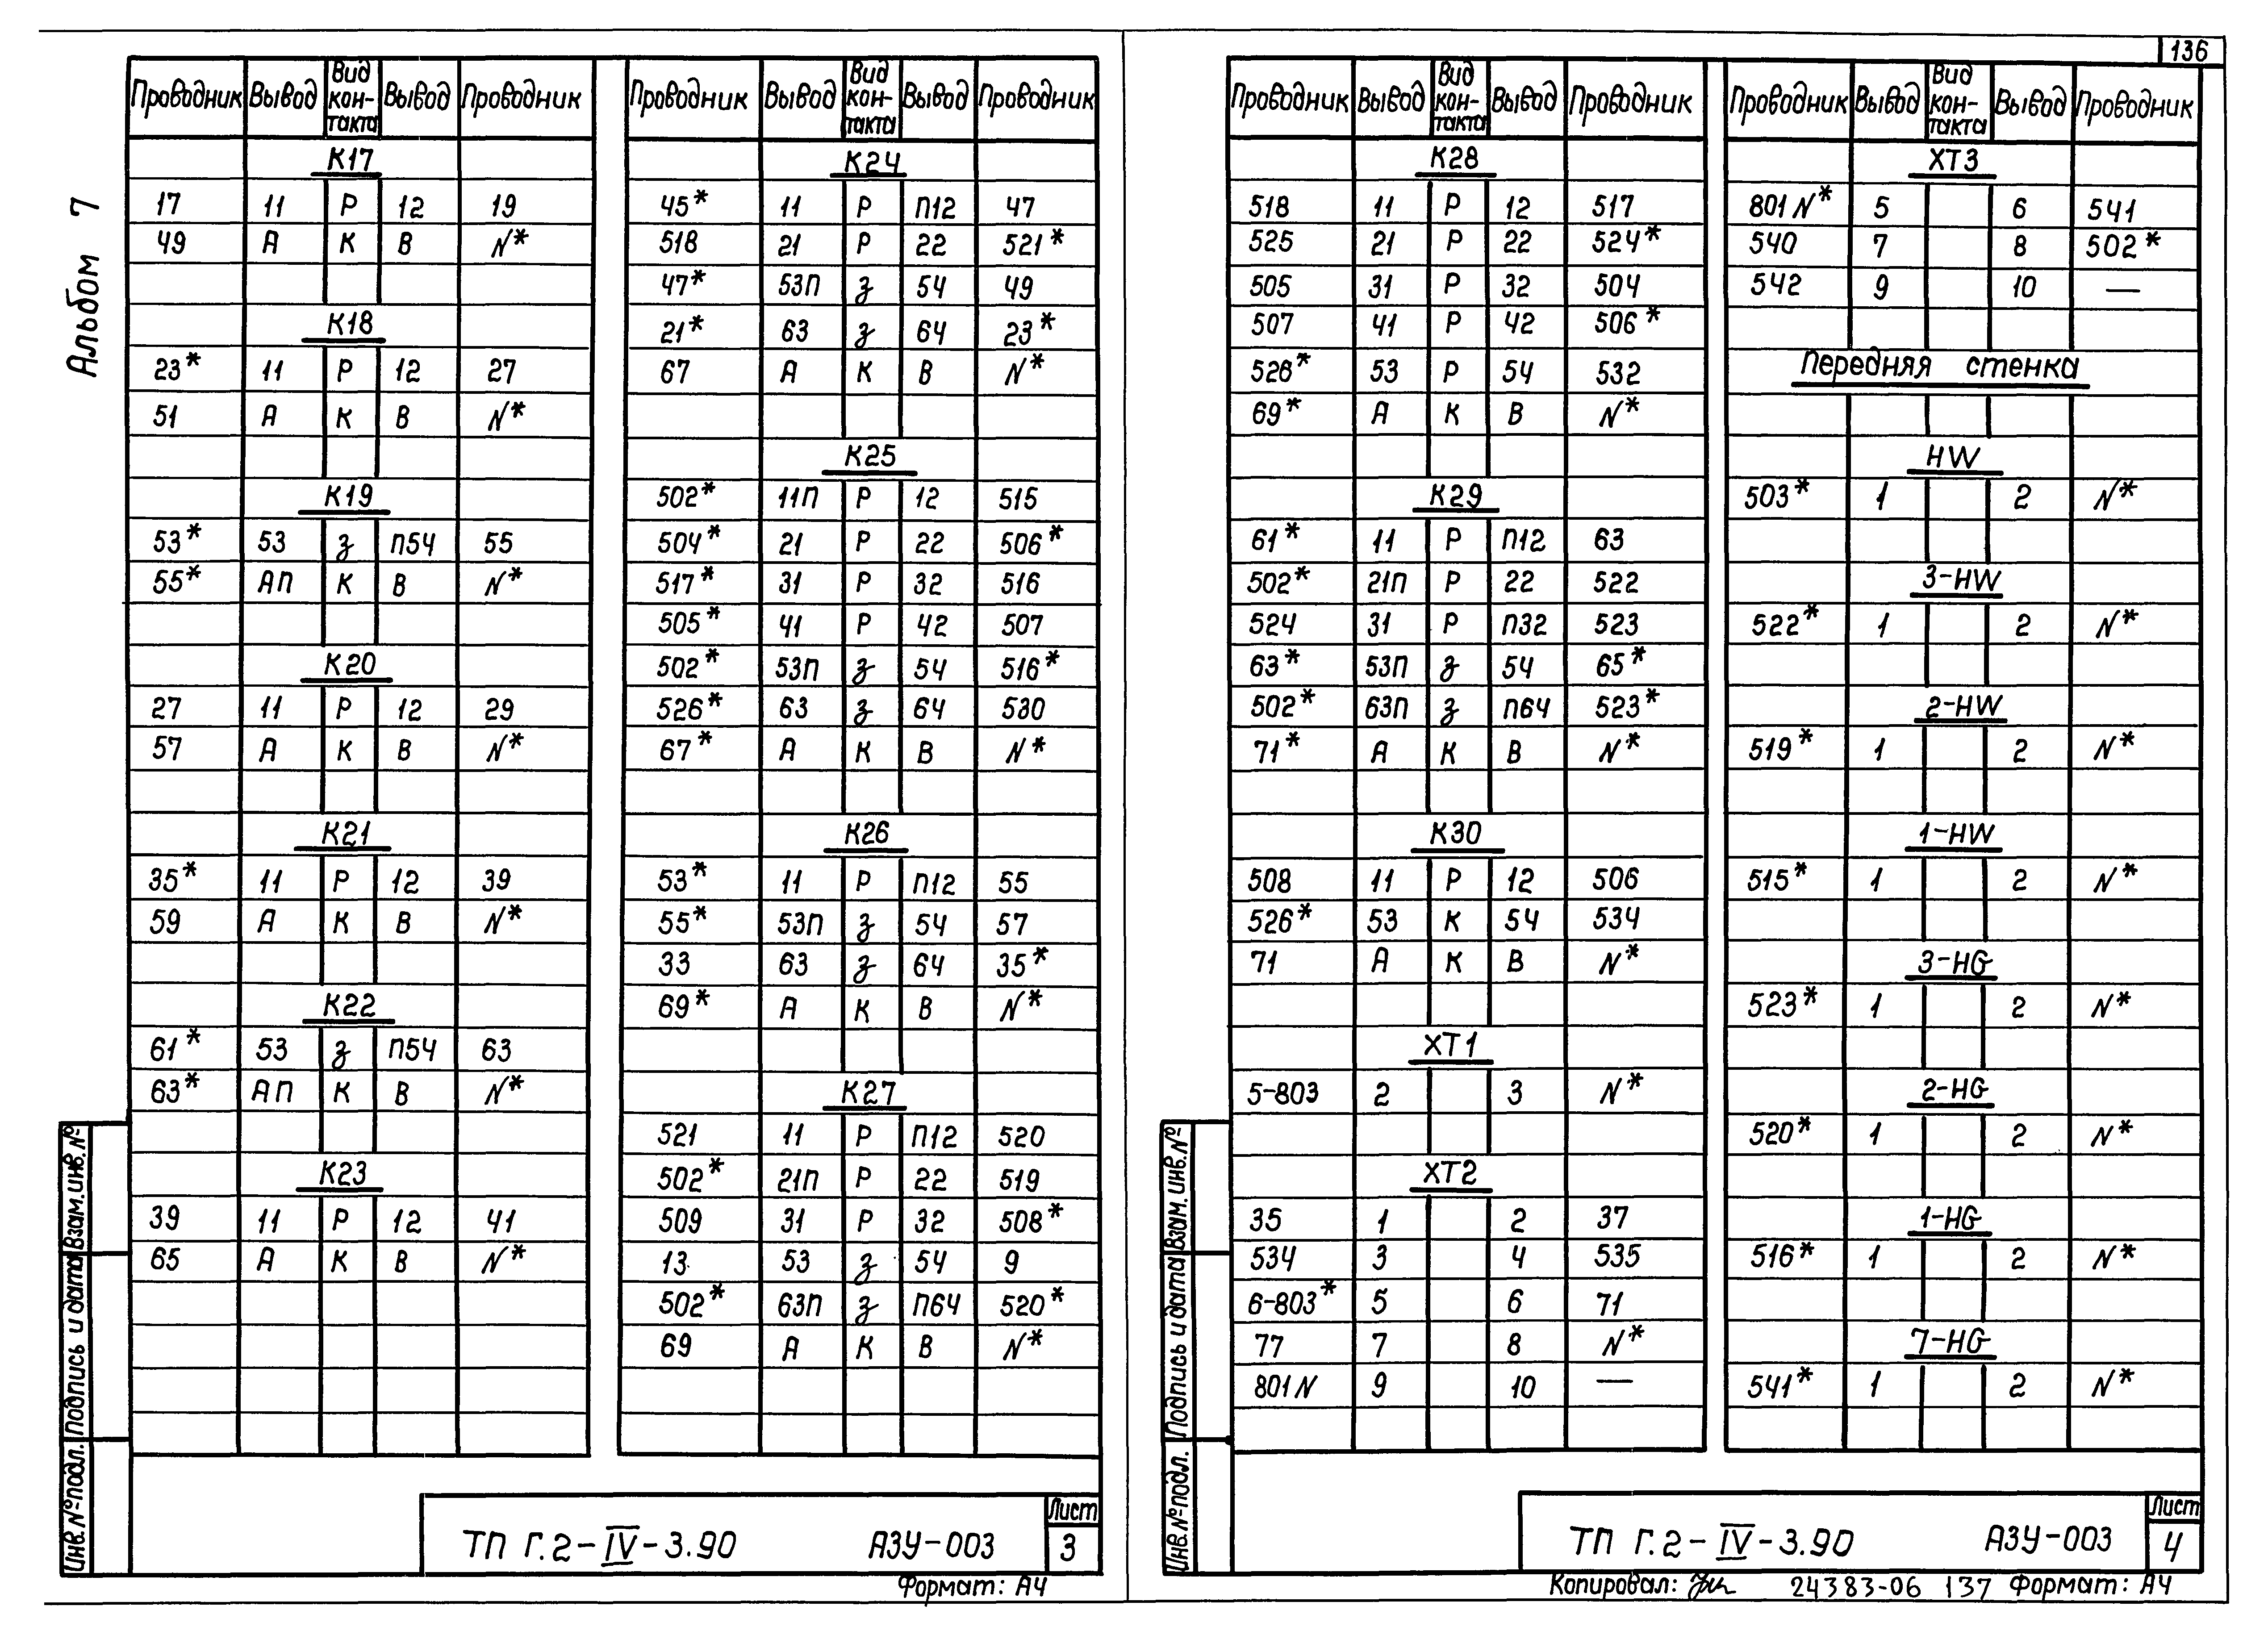 136
Альбом 7
Проводник Вывод Вид кон-такта Вывод Проводник
К17
17 11 Р 12 19
49 А К В N*
К18
23* 11 Р 12 27
51 А К В N*
К19
53* 53 З П54 55
55* АП К В N*
К20
27 11 Р 12 29
57 А К В N*
К21
35* 11 Р 12 39
59 А К В N*
К22
61* 53 З П54 63
63* АП К В N*
К23
39 11 Р 12 41
65 А К В N*
Проводник Вывод Вид кон-такта Вывод Проводник
К24
45* 11 Р П12 47
518 21 Р 22 521*
47* 53П З 54 49
21* 63 З 64 23*
67 А К В N*
К25
502* 11П Р 12 515
504* 21 Р 22 506*
517* 31 Р 32 516
505* 41 Р 42 507
502* 53П З 54 516*
526* 63 З 64 530
67* А К В N*
К26
53* 11 Р П12 55
55* 53П З 54 57
33 63 З 64 35*
69* А К В N*
К27
521 11 Р П12 520
502* 21П Р 22 519
509 31 Р 32 508*
13 53 З 54 9
502* 63П З П64 520*
69 А К В N*
Инв.№подл. Подпись и дата Взам.инв.№
ТП Г.2-IV-3.90 АЗУ-003 Лист 3
Формат: А4
Проводник Вывод Вид кон-такта Вывод Проводник
К28
518 11 Р 12 517
525 21 Р 22 524*
505 31 Р 32 504
507 41 Р 42 506*
526* 53 Р 54 532
69* А К В N*
К29
61* 11 Р П12 63
502* 21П Р 22 522
524 31 Р П32 523
63* 53П З 54 65*
502* 63П З П64 523*
71* А К В N*
К30
508 11 Р 12 506
526* 53 К 54 534
71 А К В N*
ХТ1
5-803 2 3 N*
ХТ2
35 1 2 37
534 3 4 535
6-803* 5 6 71
77 7 8 N*
801N 9 10 —
Проводник Вывод Вид кон-такта Вывод Проводник
ХТ3
801N* 5 6 541
540 7 8 502*
542 9 10 —
Передняя стенка
HW
503* 1 2 N*
3-HW
522* 1 2 N*
2-HW
519* 1 2 N*
1-HW
515* 1 2 N*
3-HG
523* 1 2 N*
2-HG
520* 1 2 N*
1-HG
516* 1 2 N*
7-HG
541* 1 2 N*
Инв.№подл. Подпись и дата Взам.инв.№
ТП Г.2-IV-3.90 АЗУ-003 Лист 4
Копировал: 24383-06 137 Формат: А4